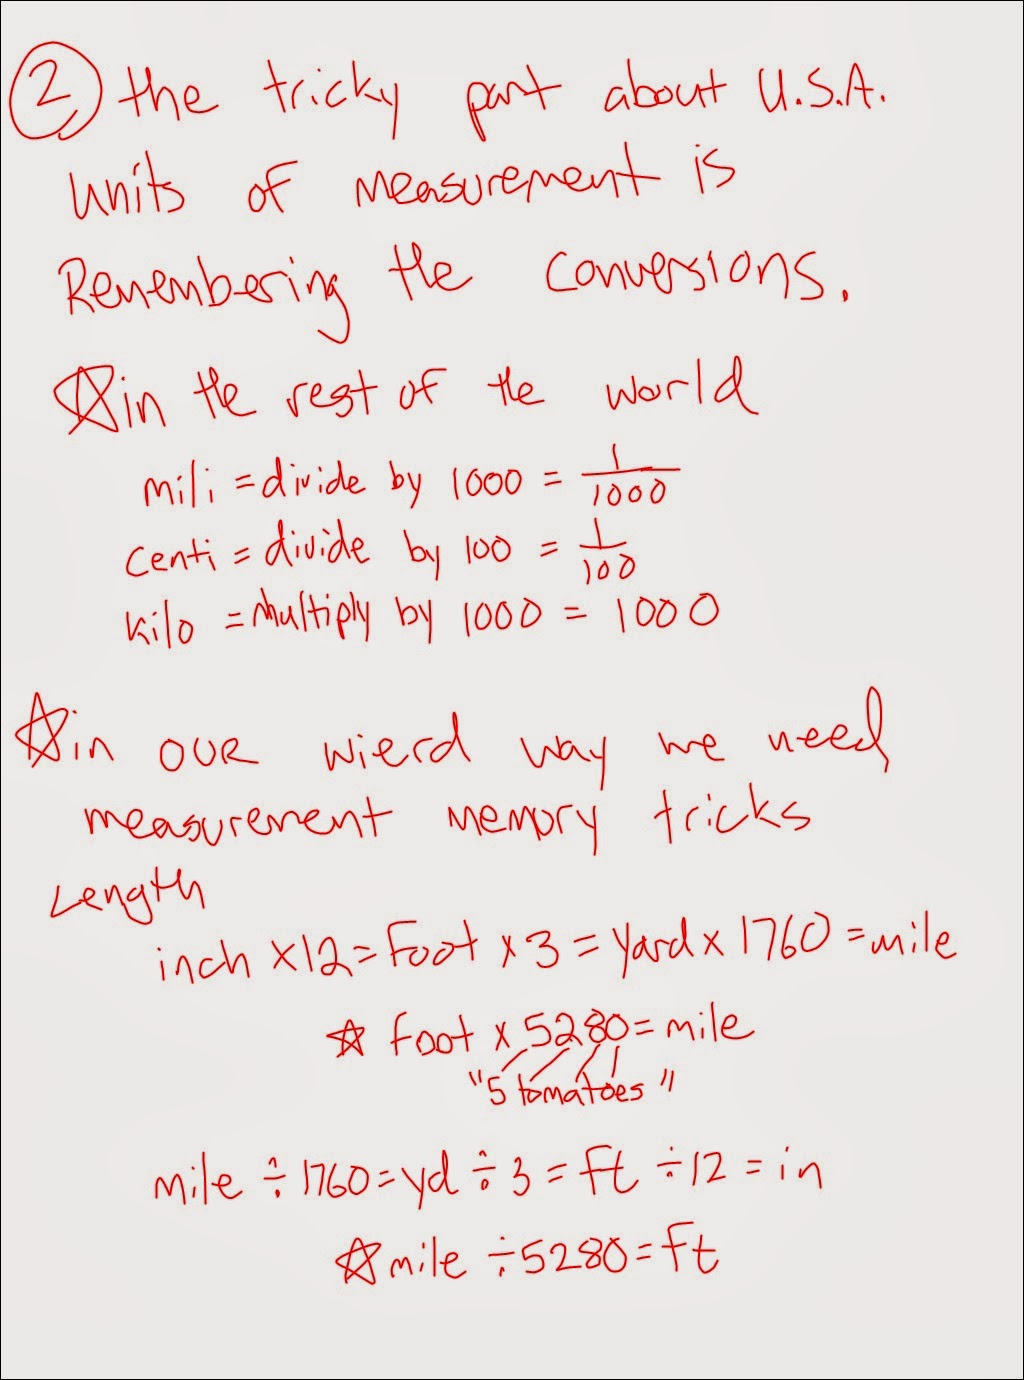 2, the tricky part about U.S.A.
units of measurement is
Remembering the conversions.
☆in the rest of the world
mili = divide by 1000 = 1/1000
centi = divide by 100 = 1/100
kilo = multiply by 1000 = 1000
☆in our wierd way we need
measurement memory tricks
Length
inch x12 = Foot x 3 = yard x 1760 = mile
☆ foot x 5280 = mile
"5 tomatoes"
mile ÷ 1760 = yd ÷ 3 = ft ÷ 12 = in
☆ mile ÷ 5280 = ft